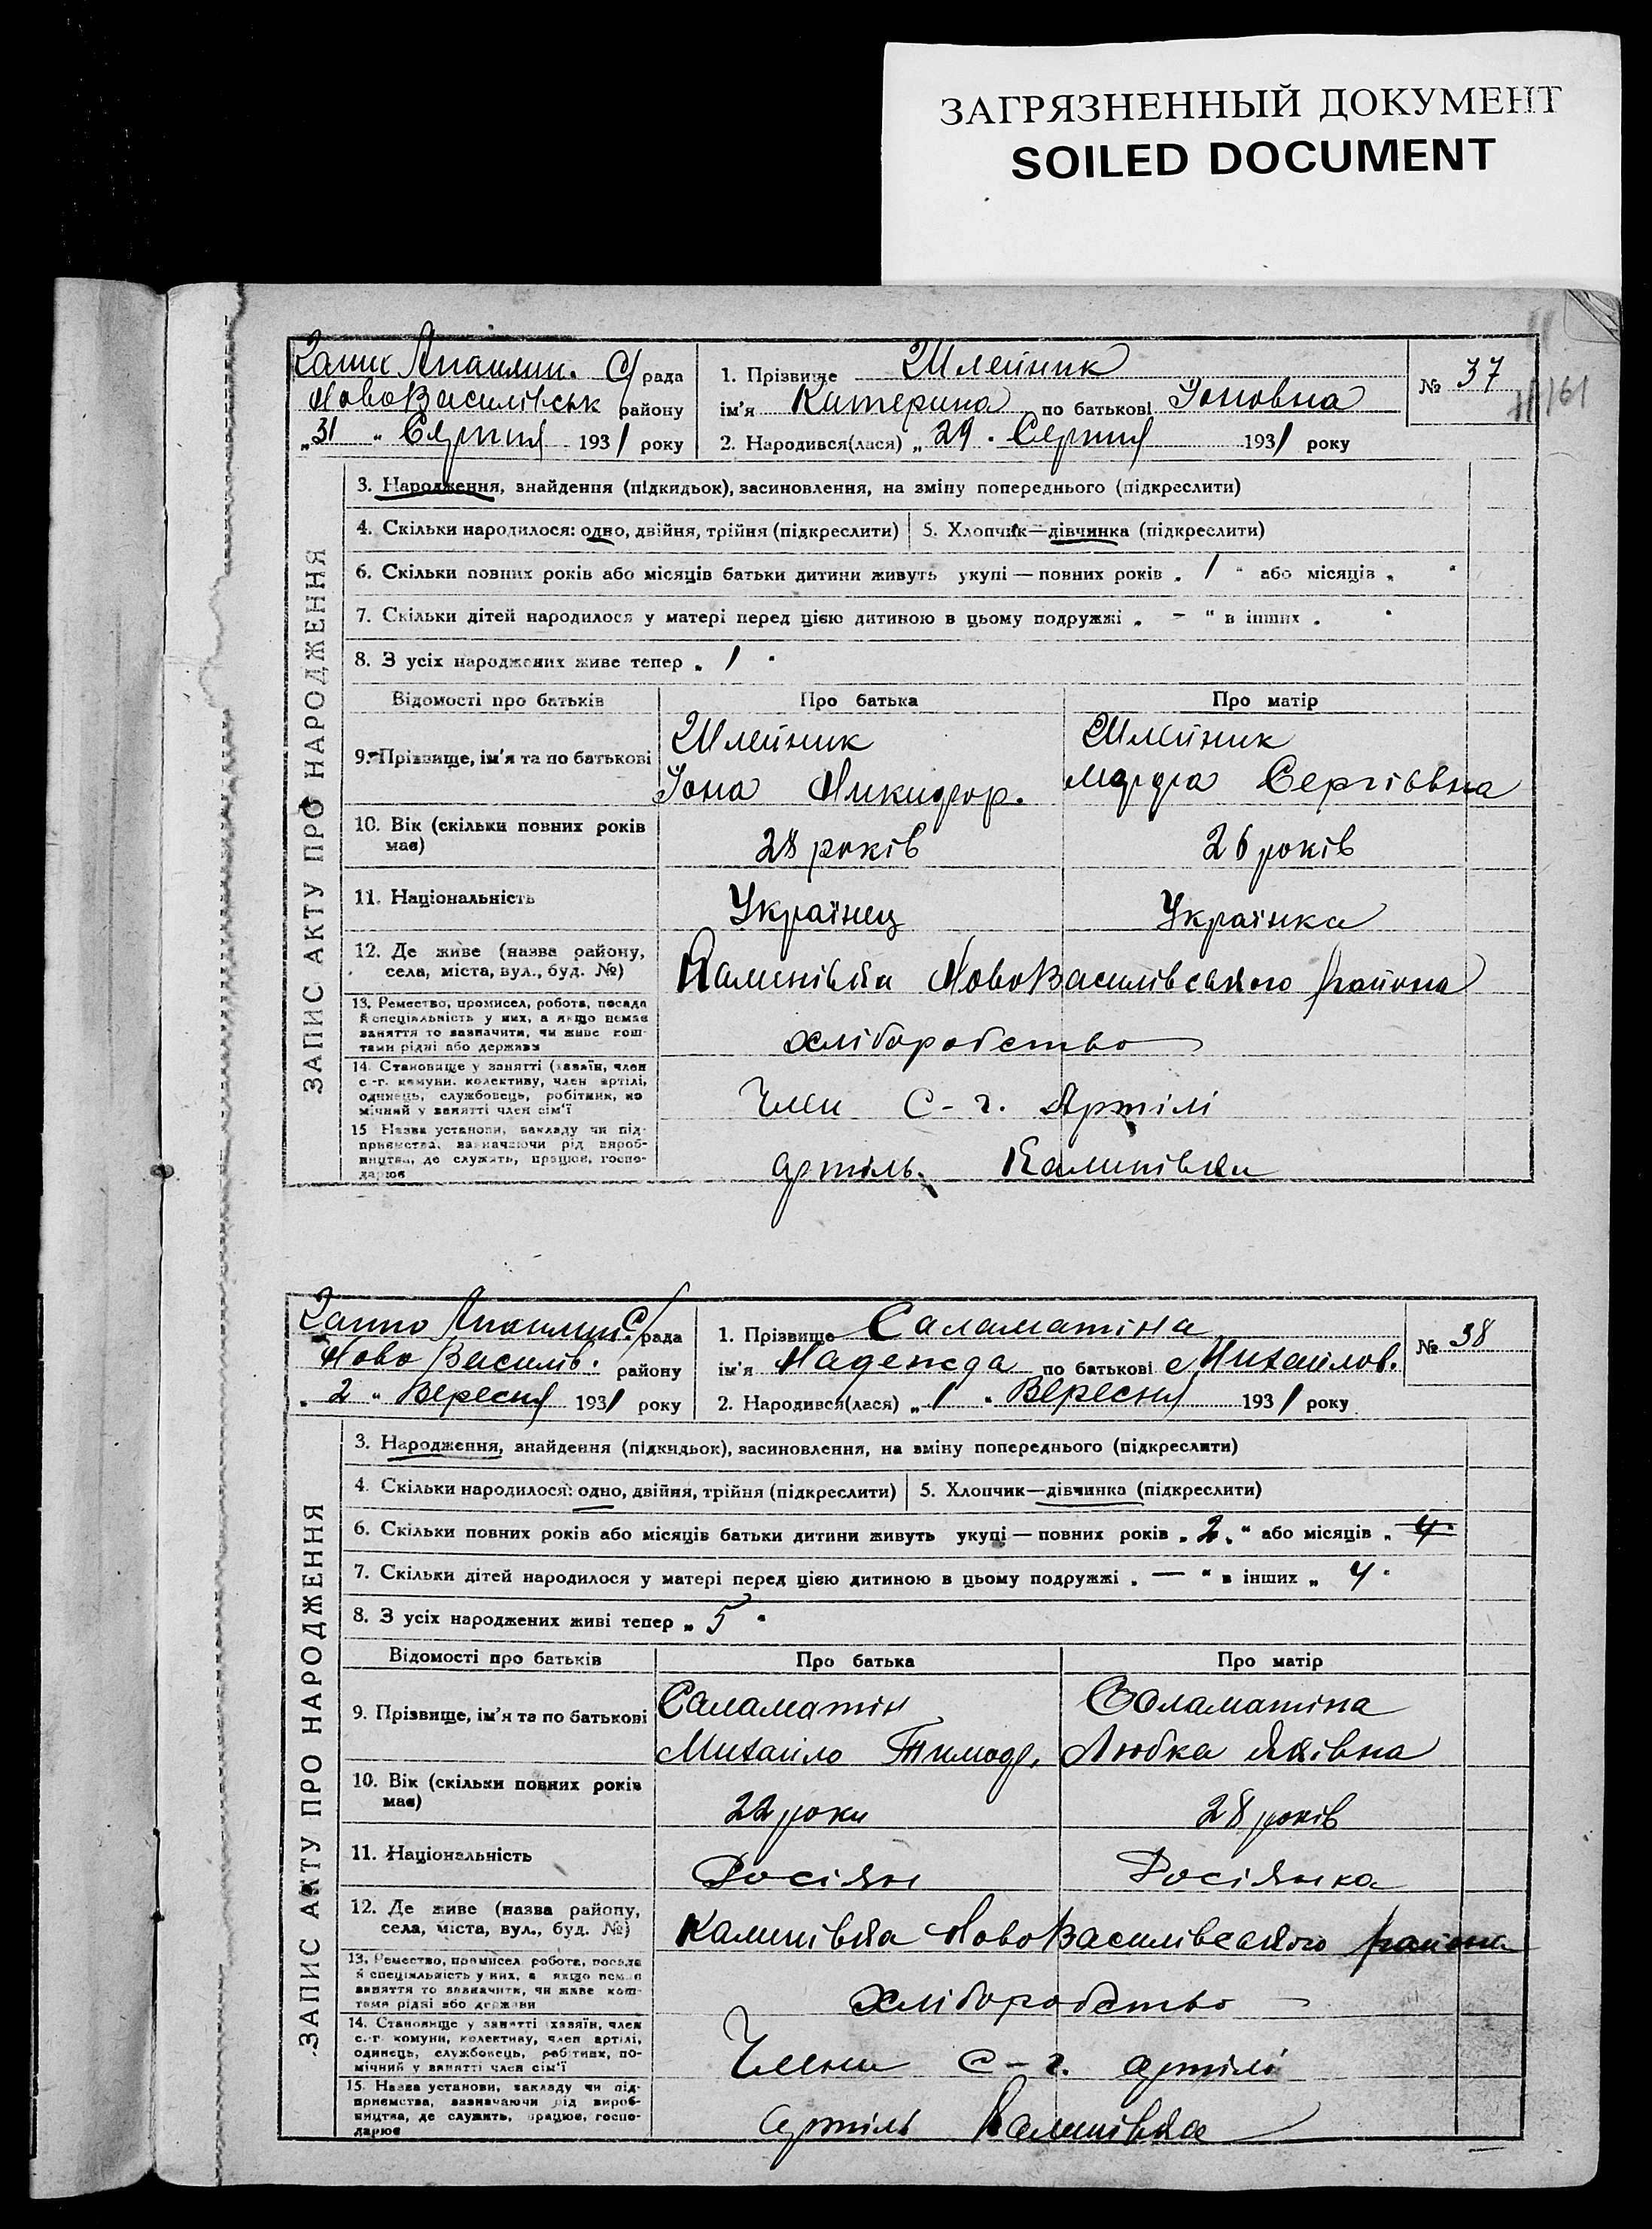 ЗАГРЯЗНЕННЫЙ ДОКУМЕНТ
SOILED DOCUMENT
С/рада
НовоВасилівськ району
„31 “ Серпня 1931 року
1. Прізвище Шлейник
ім'я Катерина по батькові Іоновна
2. Народився(лася) „29 “ Серпня 1931 року
№ 37
161
ЗАПИС АКТУ ПРО НАРОДЖЕННЯ
3. Народження, знайдення (підкидьок), засиновлення, на зміну попереднього (підкреслити)
4. Скільки народилося: одно, двійня, трійня (підкреслити) 5. Хлопчик—дівчинка (підкреслити)
6. Скільки повних років або місяців батьки дитини живуть укупі — повних років „ 1 “ або місяців „ “
7. Скільки дітей народилося у матері перед цією дитиною в цьому подружжі „ – “ в інших „ “
8. З усіх народжених живе тепер „ 1 “
Відомості про батьків Про батька Про матір
9. Прізвище, ім'я та по батькові
Шлейник Шлейник
Іона Никифор. Марфа Сергіевна
10. Вік (скільки повних років має)
28 років 26 років
11. Національність Українец Українка
12. Де живе (назва району,
села, міста, вул., буд. №)
Калинівка НовоВасилівського района
13. Ремество, промисел, робота, посада
й спеціальність у них, а якщо немає
заняття то зазначити, чи живе кош-
тами рідні або держави
хліборобство
14. Становище у занятті (хазяїн, член
с.-г. комуни, колективу, член артілі,
одинець, службовець, робітник, по
мічний у занятті член сім'ї
Член С-г. Артілі
15 Назва установи, закладу чи під-
приємства, зазначаючи рід вироб-
ництва, де служить, працює, госпо-
дарює
артіль Калинівка
С/рада
Ново Василів. району
„ 2 “ Вересня 1931 року
1. Прізвище Саламатіна
ім'я Надежда по батькові Михайлов.
2. Народився(лася) „ 1 “ Вересня 1931 року
№ 38
ЗАПИС АКТУ ПРО НАРОДЖЕННЯ
3. Народження, знайдення (підкидьок), засиновлення, на зміну попереднього (підкреслити)
4. Скільки народилося: одно, двійня, трійня (підкреслити) 5. Хлопчик—дівчинка (підкреслити)
6. Скільки повних років або місяців батьки дитини живуть укупі — повних років „ 2 “ або місяців „ 4 “
7. Скільки дітей народилося у матері перед цією дитиною в цьому подружжі „ — “ в інших „ 4 “
8. З усіх народжених живі тепер „ 5 “
Відомості про батьків Про батька Про матір
9. Прізвище, ім'я та по батькові
Саламатін Саламатіна
Михайло Тимоф. Любка Яківна
10. Вік (скільки повних років має)
22 роки 28 років
11. Національність Росіян Росіянка
12. Де живе (назва району,
села, міста, вул., буд. №)
Калинівка НовоВасилівського района
13. Ремество, промисел робота, посада
й спеціяльність у них, а якщо немає
заняття то зазначити, чи живе кош-
тами рідні або держави
хліборобство
14. Становище у занятті хазяїн, член
с.-г. комуни, колективу, член артілі,
одинець, службовець, робітник, по-
мічний у занятті член сім'ї
Члени с-г. артілі
15. Назва установи, закладу чи під-
приємства, зазначаючи рід вироб-
ництва, де служить, працює, госпо-
дарює
артіль Калинівка